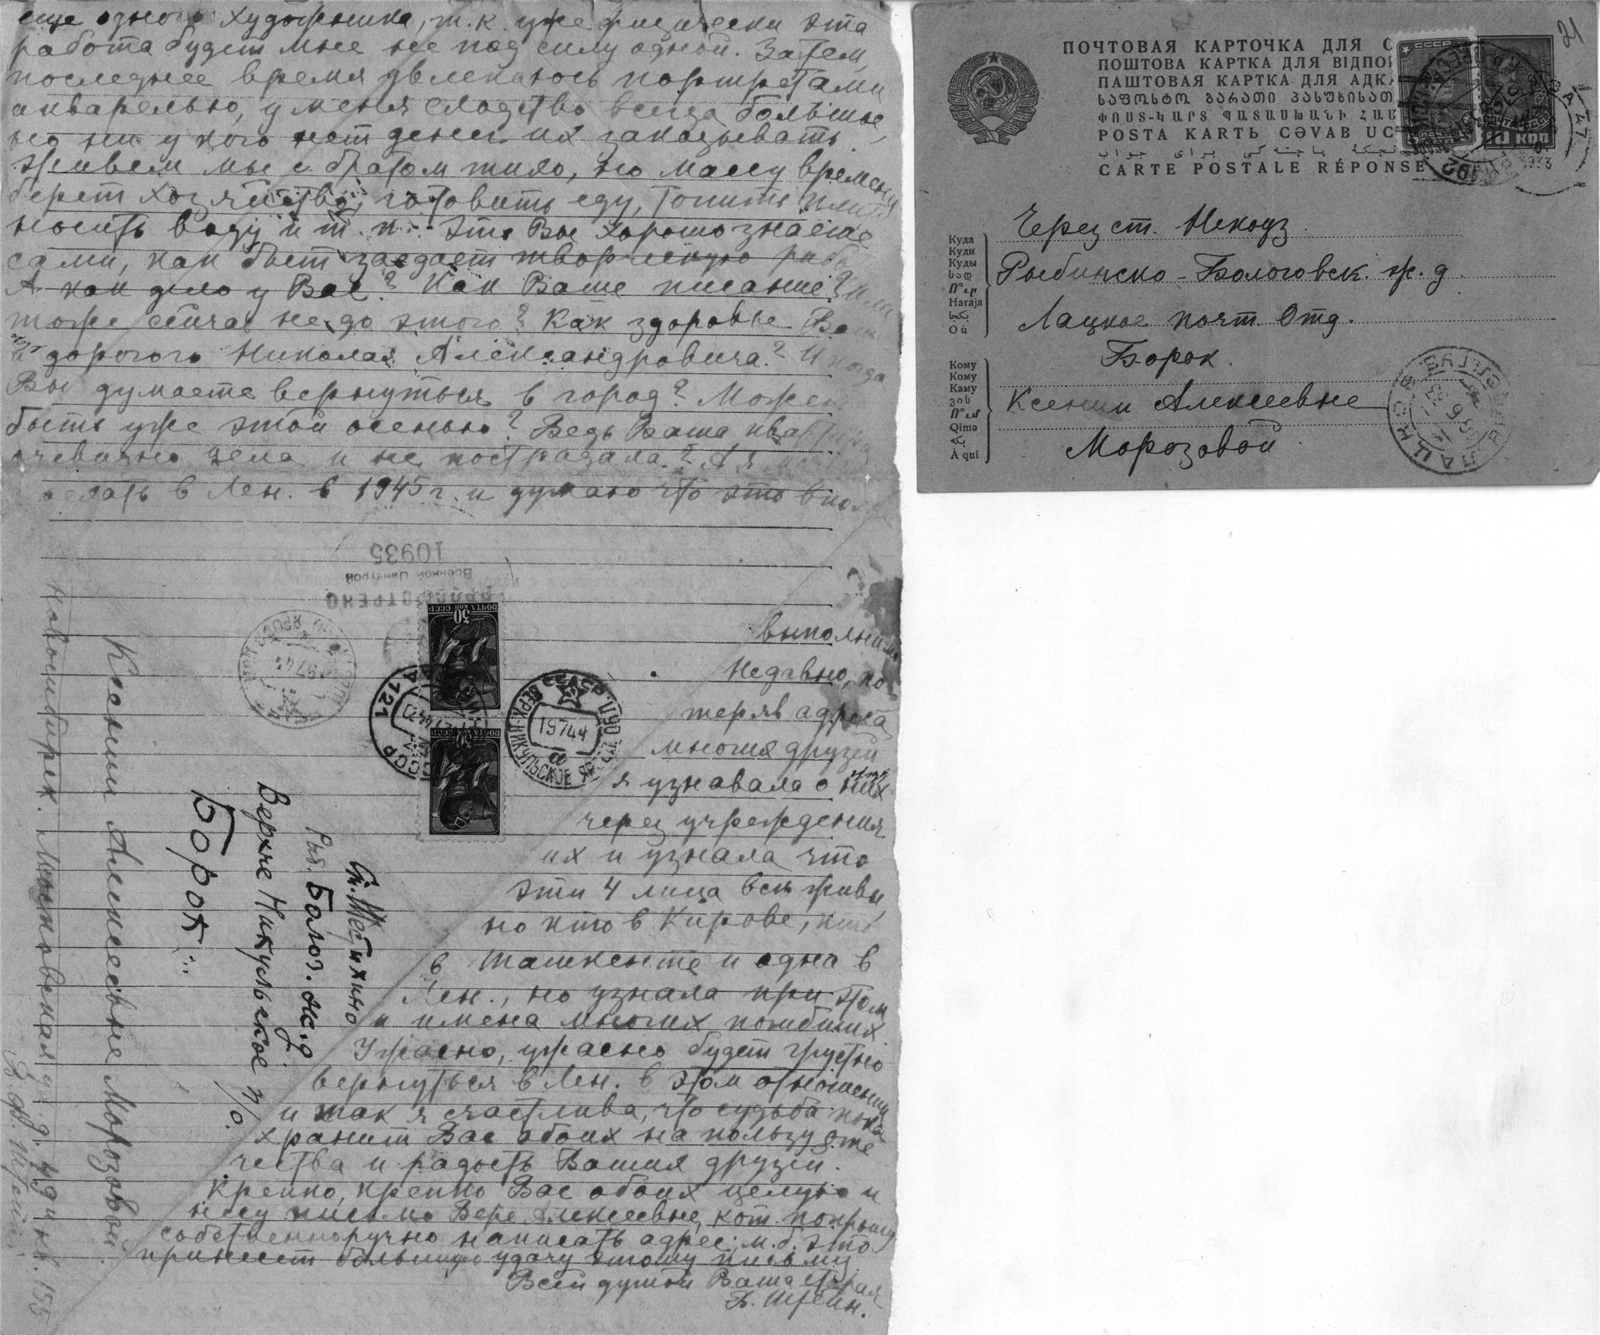 еще одного художника, т.к. уже физически эта
работа будет мне не под силу одной. Затем,
последнее время увлекаюсь портретами
акварелью, у меня сходство всегда большое,
но ни у кого нет денег их заказывать.
Живем мы с братом тихо, но массу времени
берет хозяйство, готовить еду, топить плиту
носить воду и т. п. Это Вы хорошо знаете
сами, как быт заедает творческую
А как дело у Вас? Как Ваше писание? Или
тоже сейчас не до этого? Как здоровье Ваше
и дорогого Николая Александровича? И когда
Вы думаете вернуться в город? Может
быть уже этой осенью? Ведь Ваша квартира
очевидно цела и не пострадала? А я
в Лен. в 1945 г. и думаю что это
10935
Военной Цензурой
ПРОСМОТРЕНО
ПОЧТА СССР
30
ПОЧТА СССР
30
СССР
19744
ВЕРХ-НИКУЛЬСКОЕ
выполнима
Недавно, по
теряв адреса
многих друзей
я узнавала о них
через учреждения
их и узнала что
эти 4 лица все живы,
но кто в Кирове, кто
в Ташкенте и одна в
Лен., но узнала при этом
и имена многих погибших
Ужасно, ужасно будет грустно
вернуться в Лен. в этом отношении
и так я счастлива, что судьба пока
хранит Вас обоих на пользу оте
чества и радость Ваших друзей.
Крепко, крепко Вас обоих целую и
несу письмо Вере Алексеевне, кот. попрошу
собственноручно написать адрес: м.б. это
принесет большую удачу этому письму
Всей душой Ваша старая
Б. Штейн.
Ст. Шестихино
Рыб. Болог. ж.д
Верхне Никульское п/о.
Борок
Ксении Алексеевне Морозовой
Новосибирск. Московская ул.
21
ПОЧТОВАЯ КАРТОЧКА ДЛЯ
ПОШТОВА КАРТКА ДЛЯ ВІДПО
ПАШТОВАЯ КАРТКА ДЛЯ АДКА
POSTA KARTЬ CƏVAB UC
CARTE POSTALE RÉPONSE
СССР
10 КОП
Куда
Куди
Куды
Haraja
Où
Через ст. Некоуз
Рыбинско-Бологовск. ж. д.
Лацкое почт Отд.
Борок.
Кому
Кому
Каму
Qimə
À qui
Ксении Алексеевне
Морозовой
ЛАЦКОЕ